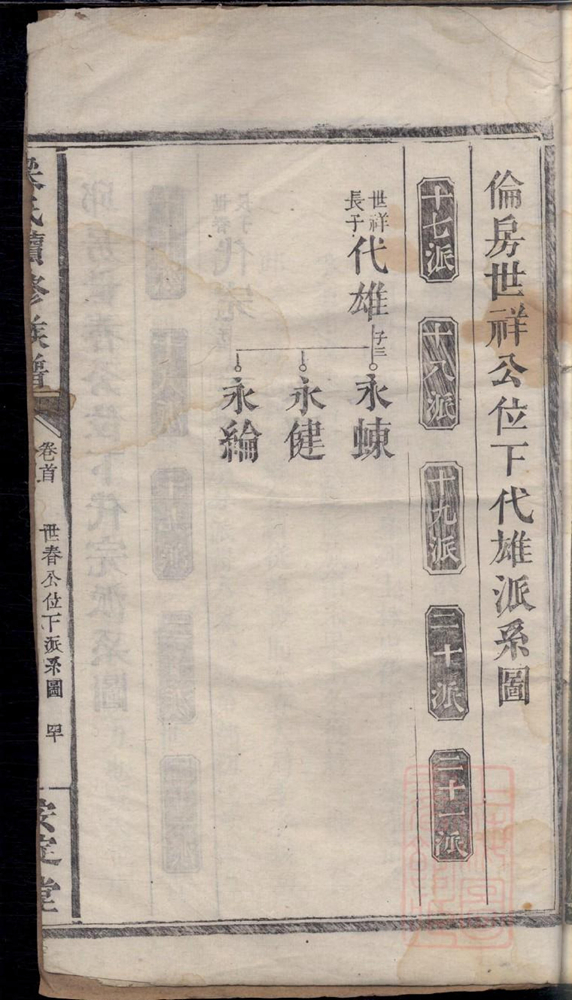 倫房世祥公位下代雄派系圖
十七派
十八派
十九派
二十派
二十一派
世祥
長子
代雄
子三
永崠
永健
永綸
氏續修族譜
卷首
世春公位下派系圖
堂